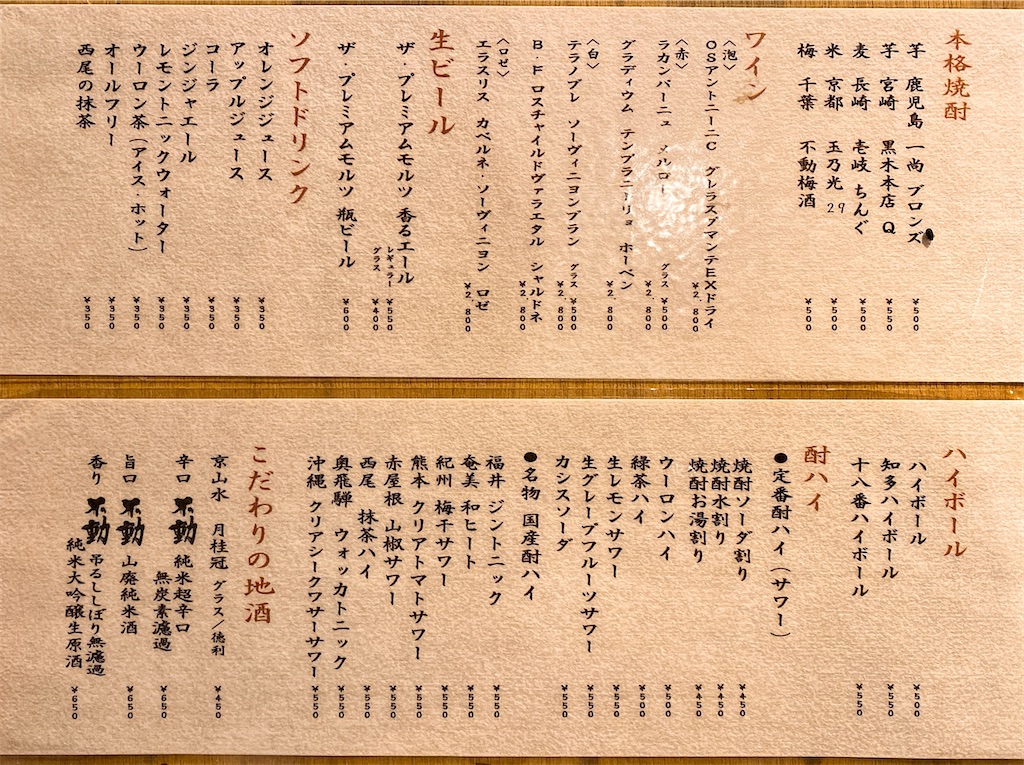 本格焼酎
芋 鹿児島 一尚 ブロンズ ¥500
芋 宮崎 黒木本店 Q ¥550
麦 長崎 壱岐 ちんぐ ¥500
米 京都 玉乃光29 ¥550
梅 千葉 不動梅酒 ¥500
ワイン
〈泡〉
OSアントニーニC グレラスプマンテEXドライ ¥2,800
〈赤〉
ラカンバーニュ メルロー グラス ¥500
¥2,800
グラディウム テンプラニーリョ ホーベン ¥2,800
〈白〉
テラノブレ ソーヴィニヨンブラン グラス ¥500
¥2,800
B.F ロスチャイルドヴァラエタル シャルドネ ¥2,800
〈ロゼ〉
エラスリス カベルネ・ソーヴィニヨン ロゼ ¥2,800
生ビール
ザ・プレミアムモルツ 香るエール レギュラー ¥550
グラス ¥400
ザ・プレミアムモルツ 瓶ビール ¥600
ソフトドリンク
オレンジジュース ¥350
アップルジュース ¥350
コーラ ¥350
ジンジャエール ¥350
レモントニックウォーター ¥350
ウーロン茶(アイス・ホット) ¥350
オールフリー ¥350
西尾の抹茶 ¥350
ハイボール
ハイボール ¥500
知多ハイボール ¥550
十八番ハイボール ¥550
酎ハイ
●定番酎ハイ(サワー)
焼酎ソーダ割り ¥450
焼酎水割り ¥450
焼酎お湯割り ¥450
ウーロンハイ ¥500
緑茶ハイ ¥500
生レモンサワー ¥550
生グレープフルーツサワー ¥550
カシスソーダ ¥550
●名物 国産酎ハイ
福井 ジントニック ¥550
奄美 和ヒート ¥550
紀州 梅干サワー ¥550
熊本 クリアトマトサワー ¥550
赤屋根 山椒サワー ¥550
西尾 抹茶ハイ ¥550
奥飛騨 ウォッカトニック ¥550
沖縄 クリアシークワサーサワー ¥550
こだわりの地酒
京山水 月桂冠 グラス/徳利 ¥450
辛口 不動 純米超辛口
無炭素濾過 ¥650
旨口 不動 山廃純米酒 ¥650
香り 不動 吊るししぼり無濾過
純米大吟醸生原酒 ¥650